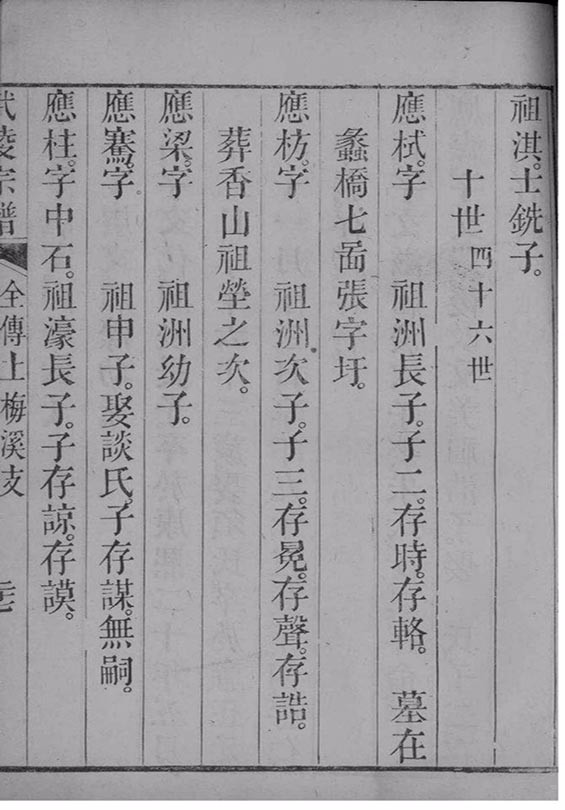 祖淇。士銑子。
十世四十六世
應栻。字　祖洲長子。子二。存時。存輅。　墓在
蠡橋七啚張字圩。
應枋。字　祖洲次子。子三。存冕。存聲。存誥。
葬香山祖塋之次。
應梁。字　祖洲幼子。
應騫。字　祖申子。娶談氏。子存謀。無嗣。
應柱。字中石。祖濠長子。子存諒。存謨。
武陵宗譜　全傳上梅溪支